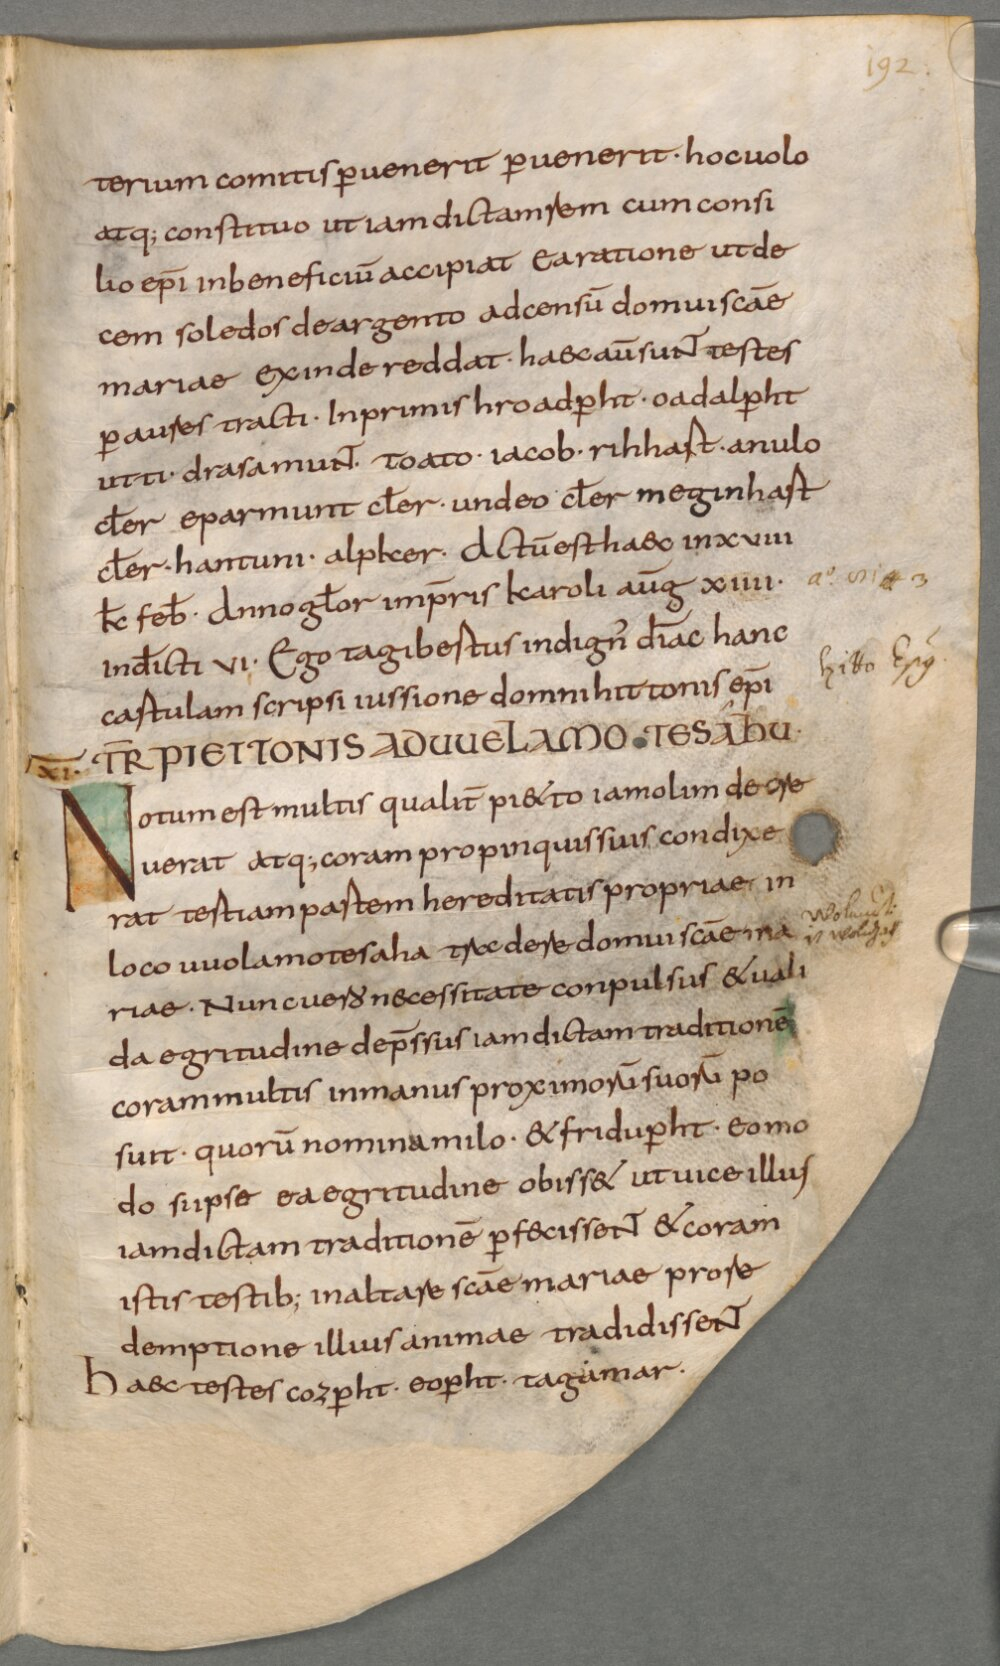 192.
terium comitis ꝑuenerit ꝑuenerit · hoc uolo
atq; constituo ut iam dictam rem cum consi
lio epī in beneficiū accipiat ea ratione ut de
cem soledos de argento ad censū domui scāe
mariae exinde reddat · haec aū sunt testes
ꝑ aures tracti · Inprimis hroadꝑht · oadalꝑht
utti · drasamunt · toato · iacob · rihhart · anulo
cl̄er eparmunt cl̄er · undeo cl̄er meginhart
cl̄er · hantuni · alpker · Actū est haec in xviii
k̄ feb̄ · Anno gl̄or imp̄ris karoli aūg xiiii ·
ind̄icti vi · Ego tagibertus indign̄ diāc hanc
hitto Ep̄s
cartulam scripsi iussione domni hittonis ep̄i
XI · TR̄ PIETTONIS AD UUELAMOTESAHU ·
Notum est multis qualit̄ pi&to iam olim decre
uerat atq; coram propinquis suis condixe
rat &tiam partem hereditatis propriae in
loco uuolamotesaha tradere domui scāe ma
riae · Nunc uero necessitate conpulsus & uali
da egritudine dep̄ssus iam dictam traditionē
coram multis in manus proximorū suorū po
suit · quorū nomina milo · & friduꝑht · eo mo
do si ipse ea egritudine obiss& ut uice illius
iam dictam traditionē ꝑfecissent & coram
istis testib; in altare scāe mariae pro re
demptione illius animae tradidissent
Haec testes cozꝑht · eoꝑht · tagamar ·